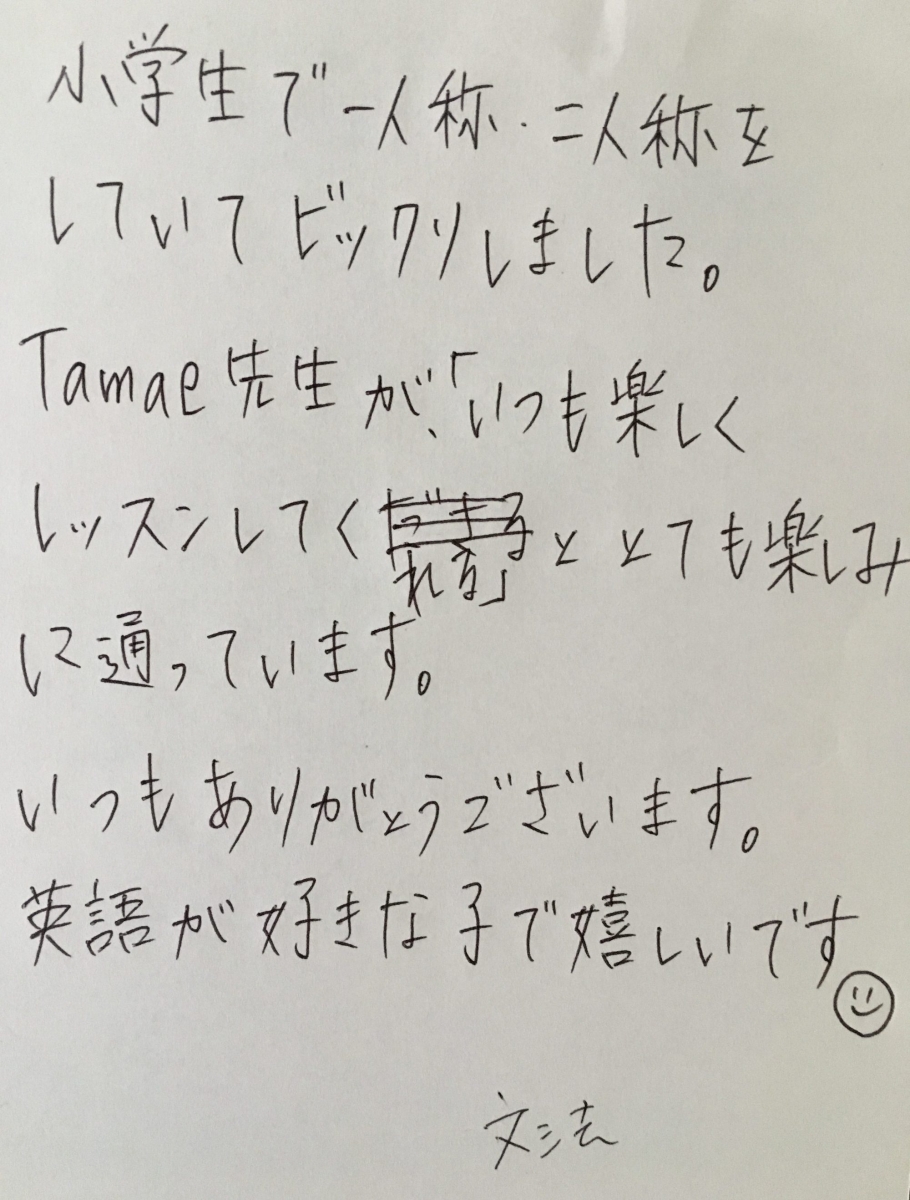 小学生で一人称・二人称を
していてビックリしました。
Tamae先生が、「いつも楽しく
レッスンしてく
れる」ととても楽しみ
に通っています。
いつもありがとうございます。
英語が好きな子で嬉しいです
文法